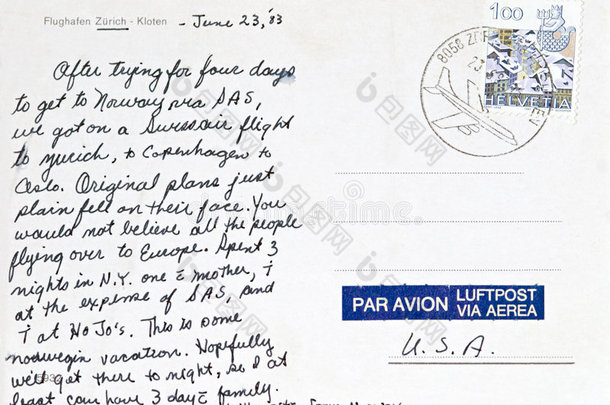 Flughafen Zürich - Kloten - June 23, '83
After trying for four days
to get to Norway via SAS,
we got on a Swissair flight
to Zurich, to Copenhagen to
Oslo. Original plans just
plain fell on their face. You
would not believe all the people
flying over to Europe. Spent 3
nights in N.Y. one c̄ mother, 1
at the expense of SAS, and
1 at HoJo's. This is some
norwegin vacation. Hopefully
we'll get there to night, so I at
least can have 3 days c̄ family.
100
HELVETIA
8058
PAR AVION LUFTPOST
VIA AEREA
U.S.A.
包图网
dreamstime